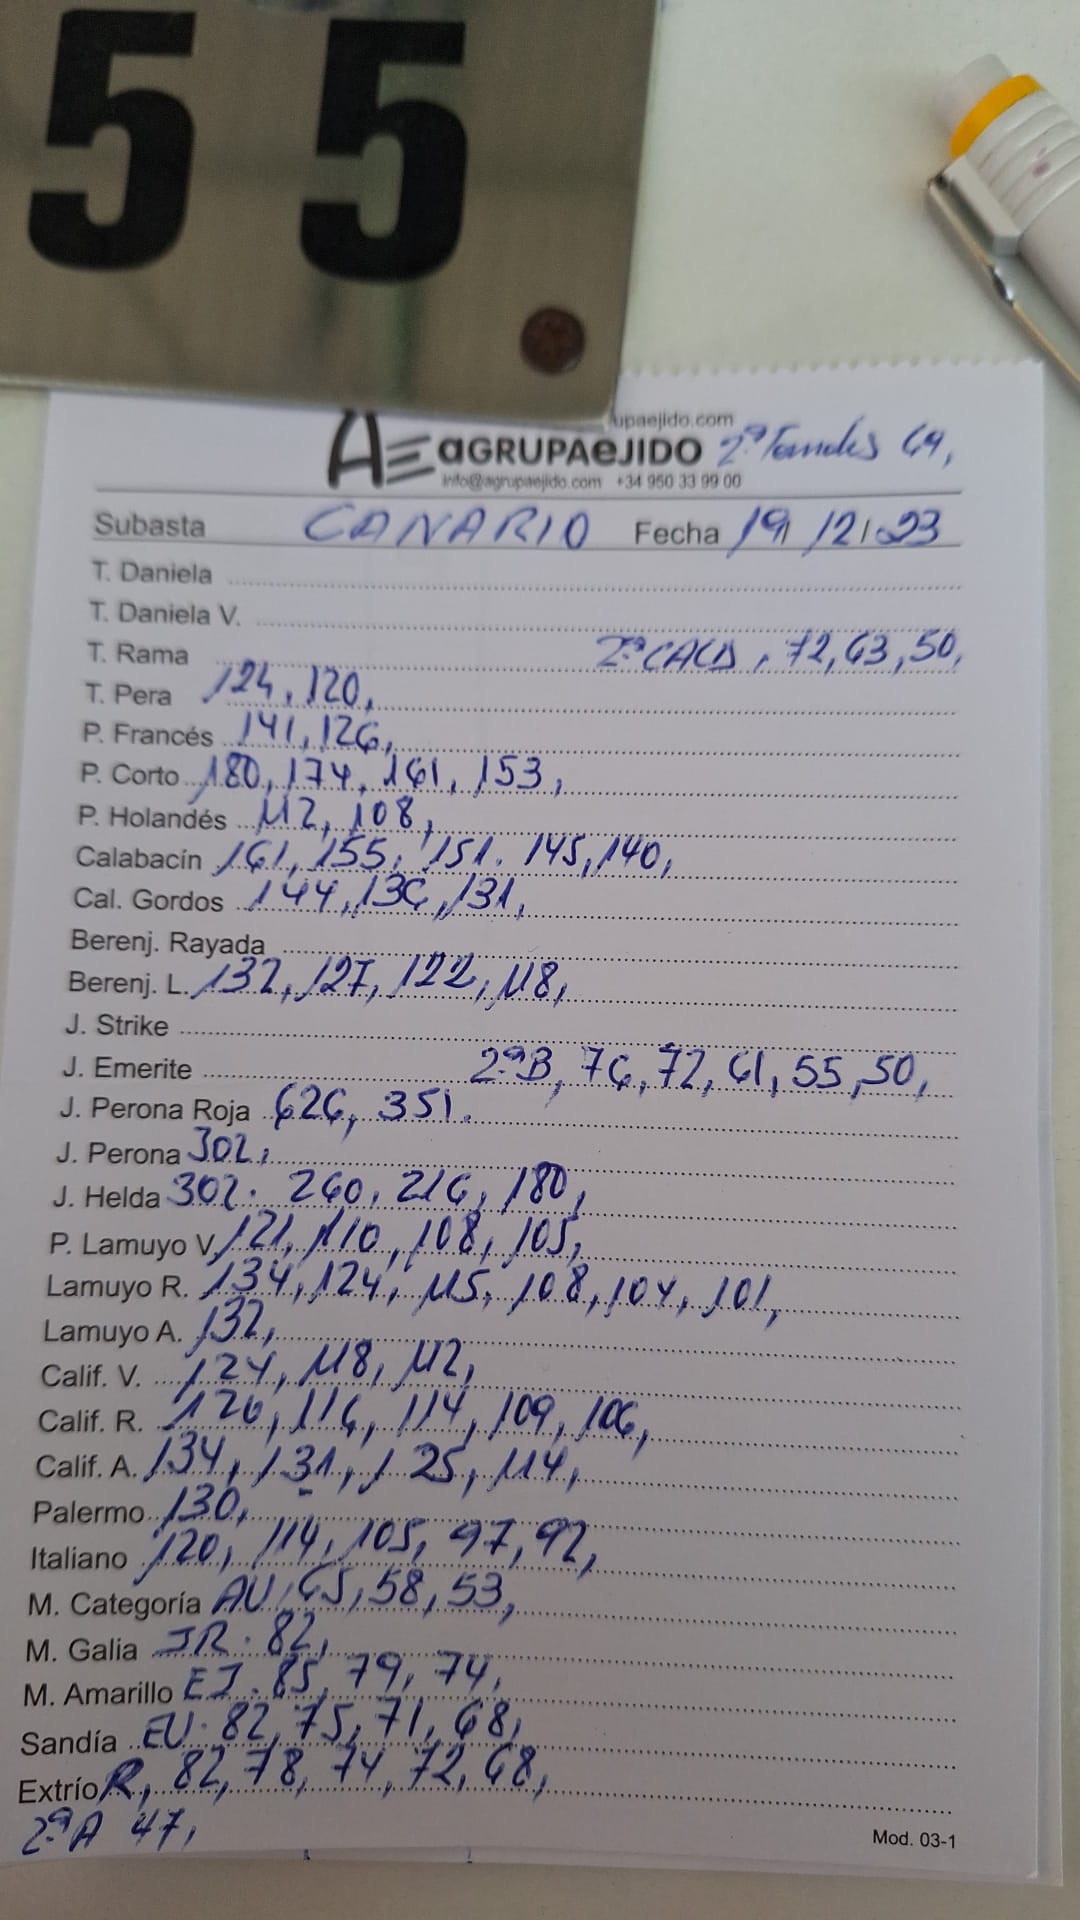 55
upaejido.com
AE aGRUPAeJIDO 2ª 69,
info@agrupaejido.com +34 950 33 99 00
Subasta CANARIO Fecha 19/12/23
T. Daniela
T. Daniela V.
T. Rama 2ª CALD, 72, 63, 50,
T. Pera 124, 120,
P. Francés 141, 126,
P. Corto 180, 174, 161, 153,
P. Holandés 112, 108,
Calabacín 161, 155, 151. 145, 140,
Cal. Gordos 144, 136, 131,
Berenj. Rayada
Berenj. L. 132, 127, 122, 118,
J. Strike
J. Emerite 2ªB, 76, 72, 61, 55, 50,
J. Perona Roja 626, 351.
J. Perona 302,
J. Helda 302. 260, 216, 180,
P. Lamuyo V. 121, 110, 108, 105,
Lamuyo R. 134, 124, 115, 108, 104, 101,
Lamuyo A. 132,
Calif. V. 124, 118, 112,
Calif. R. 120, 116, 114, 109, 106,
Calif. A. 134, 131, 125, 114,
Palermo 130,
Italiano 120, 114, 105, 97, 92,
M. Categoría AU, 65, 58, 53,
M. Galia JR. 82,
M. Amarillo EJ. 85, 79, 74,
Sandía EU. 82, 75, 71, 68,
Extrío R, 82, 78, 74, 72, 68,
2ªA 47,
Mod. 03-1